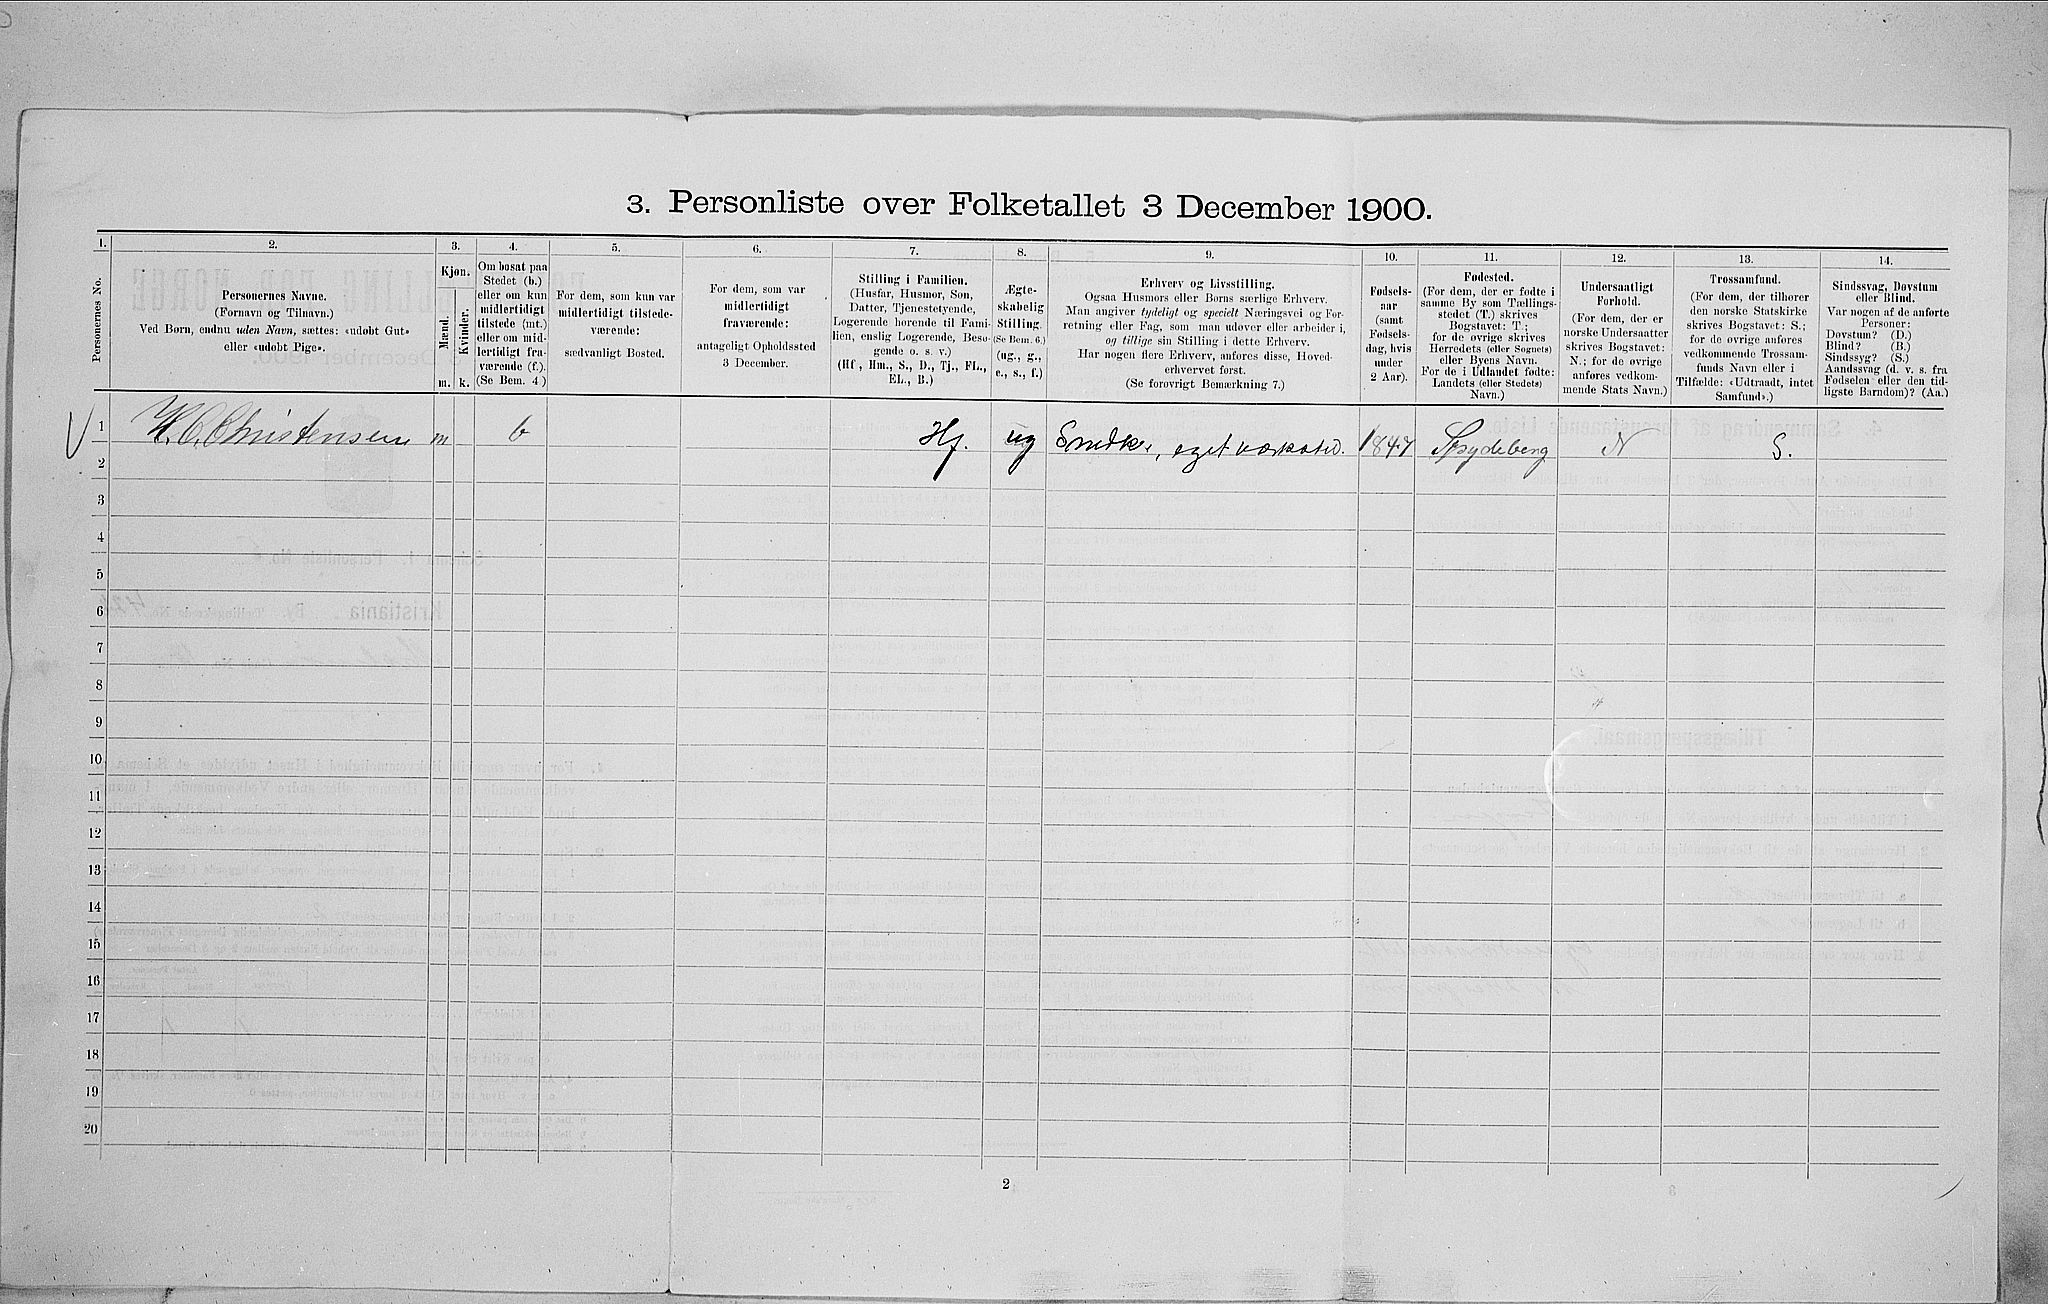 3. Personliste over Folketallet 3 December 1900.
1.
2.
3.
4.
5.
6.
7.
8.
9.
10.
11.
12.
13.
14.
Personernes No.
Personernes Navne.
(Fornavn og Tilnavn.)
Ved Børn, endnu uden Navn, sættes: «udøbt Gut»
eller «udøbt Pige».
Kjøn.
Mænd.
Kvinder.
m.
k.
Om bosat paa
Stedet (b.)
eller om kun
midlertidigt
tilstede (mt.)
eller om mid-
lertidigt fra-
værende (f.).
(Se Bem. 4.)
For dem, som kun var
midlertidigt tilstede-
værende:
sædvanligt Bosted.
For dem, som var
midlertidigt
fraværende:
antageligt Opholdssted
3 December.
Stilling i Familien.
(Husfar, Husmor, Søn,
Datter, Tjenestetyende,
Logerende hørende til Fami-
lien, enslig Logerende, Besø-
gende o. s. v.)
(Hf., Hm., S., D., Tj., FL.,
EL., B.)
Ægte-
skabelig
Stilling.
(Se Bem. 6.)
(ug., g.,
e., s., f.)
Erhverv og Livsstilling.
Ogsaa Husmors eller Børns særlige Erhverv.
Man angiver tydeligt og specielt Næringsvei og For-
retning eller Fag, som man udøver eller arbeider i,
og tillige sin Stilling i dette Erhverv.
Har nogen flere Erhverv, anføres disse, Hoved-
erhvervet først.
(Se forøvrigt Bemærkning 7.)
Fødsels-
aar
(samt
Fødsels-
dag, hvis
under
2 Aar).
Fødested.
(For dem, der er fødte i
samme By som Tællings-
stedet (T.) skrives
Bogstavet: T.;
for de øvrige skrives
Herredets (eller Sognets)
eller Byens Navn.
For de i Udlandet fødte:
Landets (eller Stedets)
Navn.)
Undersaatligt
Forhold.
(For dem, der er
norske Undersaatter
skrives Bogstavet:
N.; for de øvrige
anføres vedkom-
mende Stats Navn.)
Trossamfund.
(For dem, der tilhører
den norske Statskirke
skrives Bogstavet: S.;
for de øvrige anføres
vedkommende Trossam-
funds Navn eller i
Tilfælde: «Udtraadt, intet
Samfund».)
Sindssvag, Døvstum
eller Blind.
Var nogen af de anførte
Personer:
Døvstum? (D.)
Blind? (B.)
Sindssyg? (S.)
Aandssvag (d. v. s. fra
Fødselen eller den tid-
ligste Barndom)? (Aa.)
1 H. C. Christensen m b Hf. ug Snedker, eget værksted. 1847 Spydeberg N S.
2
3
4
5
6
7
8
9
10
11
12
13
14
15
16
17
18
19
20
2